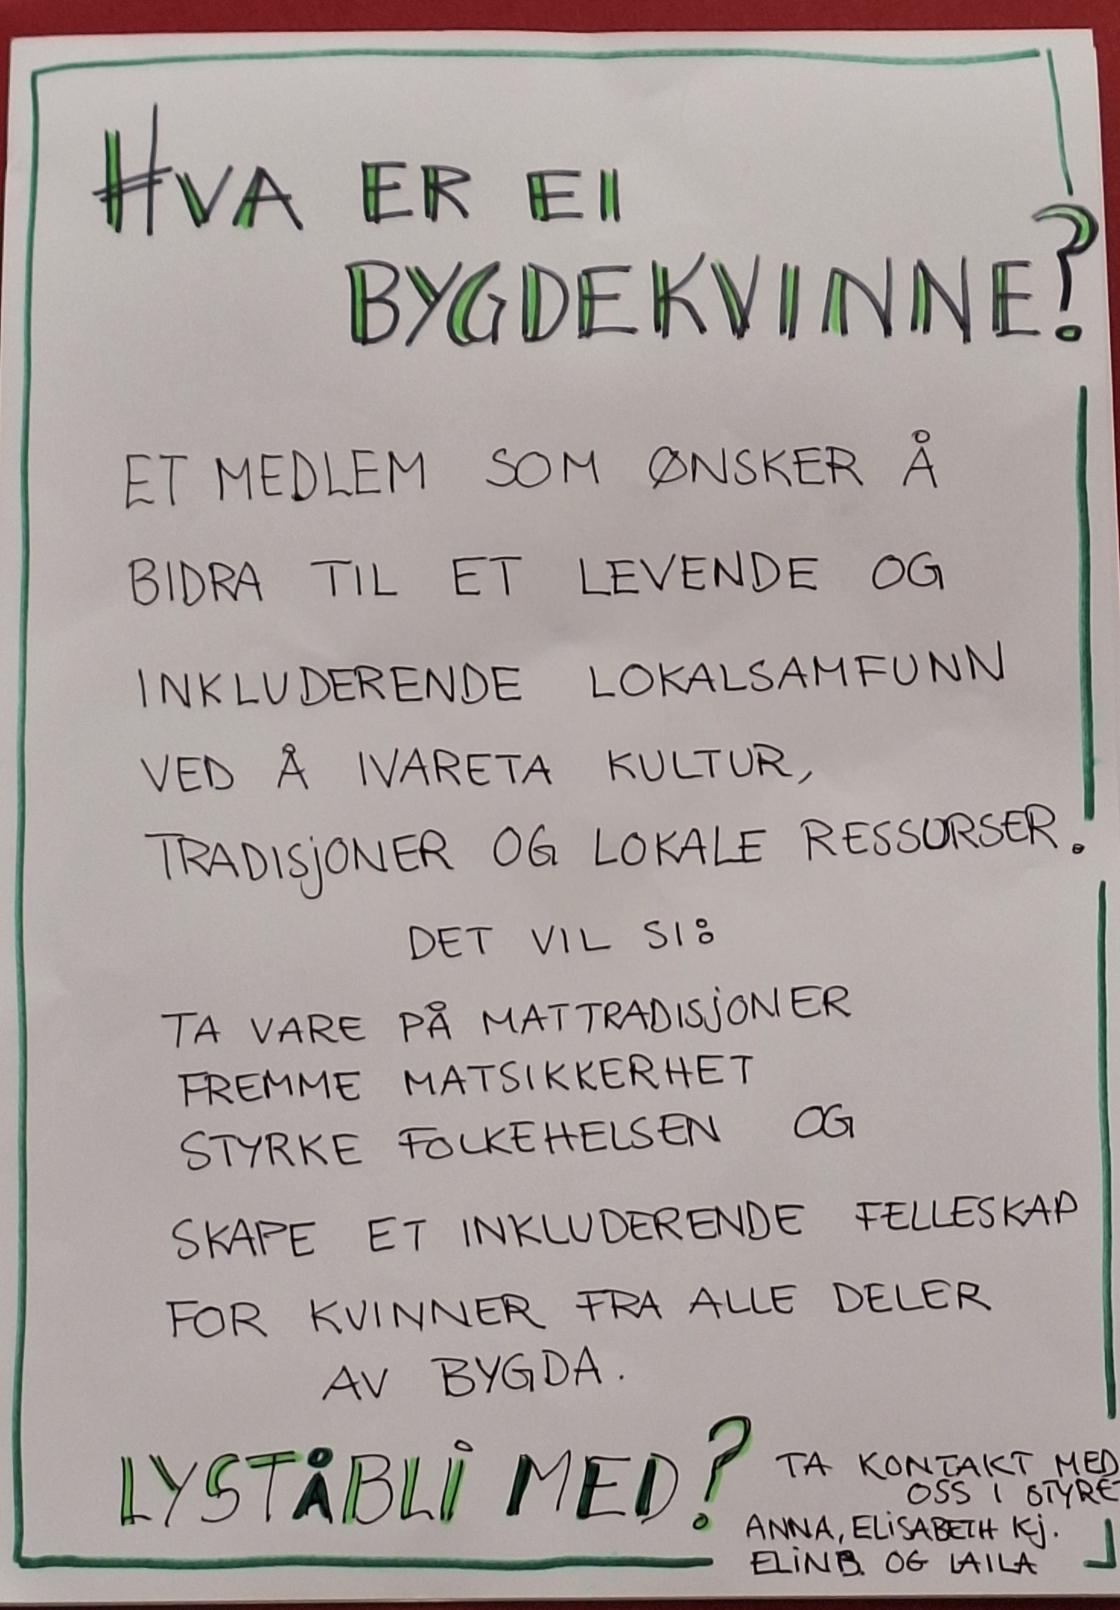 HVA ER EI
BYGDEKVINNE?
ET MEDLEM SOM ØNSKER Å
BIDRA TIL ET LEVENDE OG
INKLUDERENDE LOKALSAMFUNN
VED Å IVARETA KULTUR,
TRADISjONER OG LOKALE RESSURSER.
DET VIL SI:
TA VARE PÅ MATTRADISjONER
FREMME MATSIKKERHET
STYRKE FOLKEHELSEN OG
SKAPE ET INKLUDERENDE FELLESKAP
FOR KVINNER FRA ALLE DELER
AV BYGDA.
LYST Å BLi MED?
TA KONTAKT MED
OSS I STYRET
ANNA, ELiSABETH Kj.
ELiN B. OG LAILA